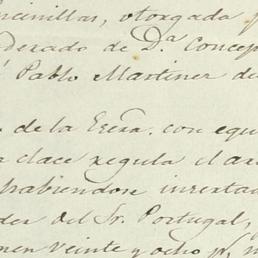 cinillas, otorgada p
derado de D.ª Concep
Pablo Martinez de
de la Escra. con equi
clace regula el ar
habiendose insertad
der del Sr. Portugal,
men veinte y ocho p.